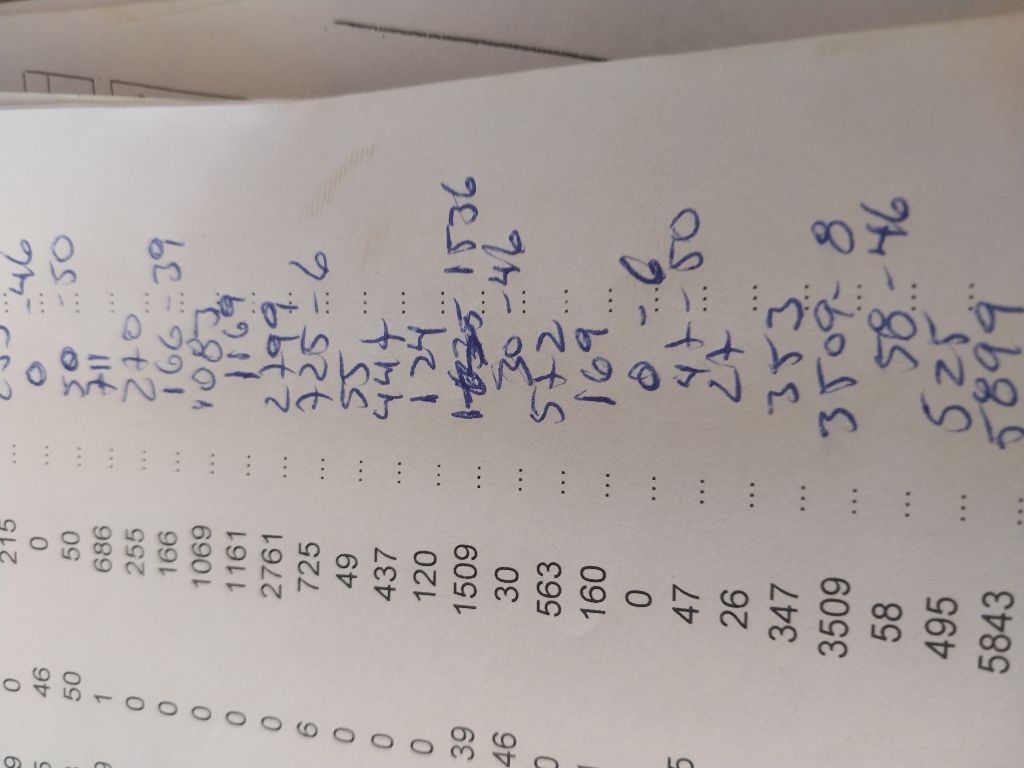 0 215 ...
46 0 ... 0 ... -46
50 50 ... 50 ... -50
1 686 ... 711 ...
0 255 ... 270 ...
0 166 ... 166 ... -39
0 1069 ... 1083 ...
0 1161 ... 1169 ...
0 2761 ... 2799 ...
6 725 ... 725 ... -6
0 49 ... 55 ...
0 437 ... 447 ...
0 120 ... 124 ...
39 1509 ... 1536
46 30 ... 30 ... -46
563 ... 572 ...
160 ... 169 ...
0 ... 0 ... -6
47 ... 47 ... -50
26 ... 27 ...
347 ... 353 ...
3509 ... 3509 ... -8
58 ... 58 ... -46
495 ... 525 ...
5843 ... 5899 ...